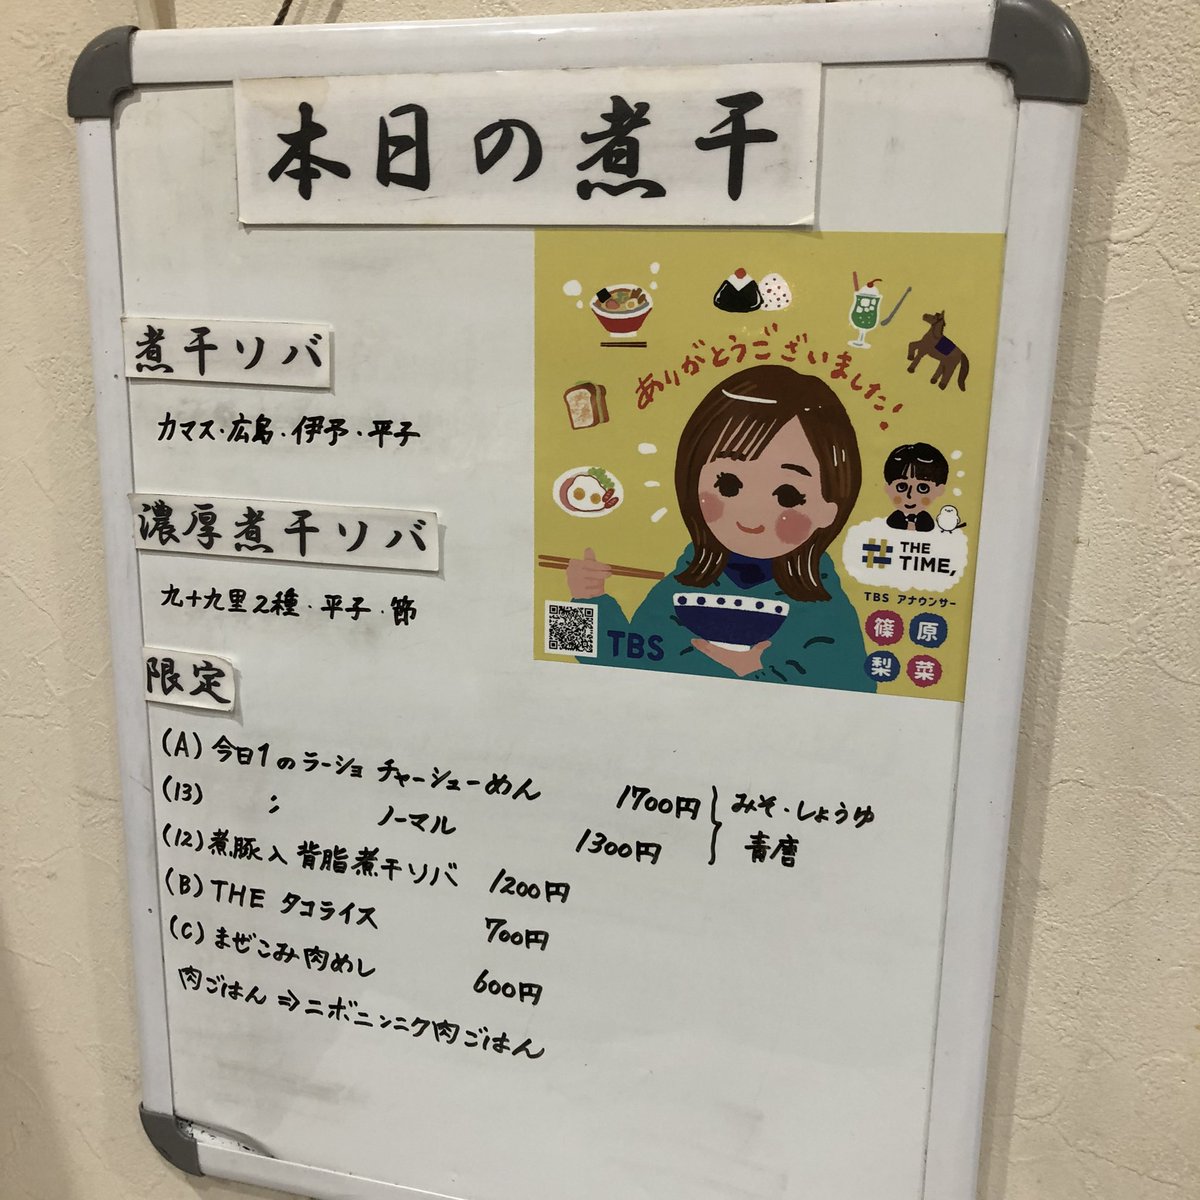 本日の煮干
煮干ソバ
カマス・広島・伊予・平子
濃厚煮干ソバ
九十九里2種・平子・節
限定
(A) 今日1のラーショ チャーシューめん 1700円
(13) 〃 ノーマル 1300円
みそ・しょうゆ
(12) 煮豚入 背脂煮干ソバ 1200円
(B) THE タコライス 700円
(C) まぜこみ肉めし 600円
肉ごはん ⇒ ニボニンニク肉ごはん
ありがとうございました!
THE
TIME,
TBS アナウンサー
篠原
梨菜
TBS